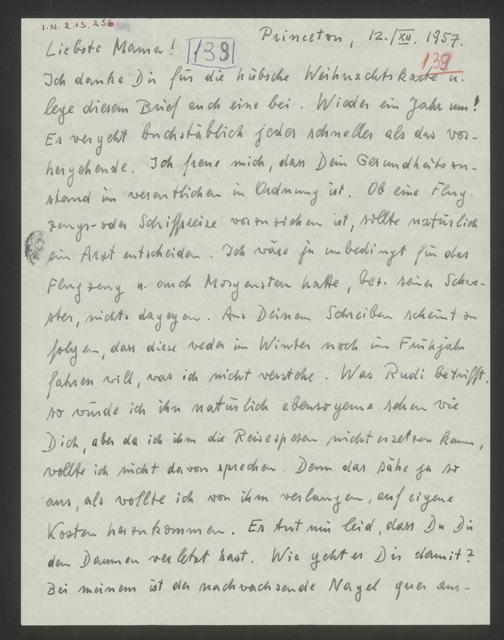 I.N. 213.256
Princeton, 12./XII. 1957.
Liebste Mama! 139
139
Ich danke Dir für die hübsche Weihnachtskarte u.
lege diesem Brief auch eine bei. Wieder ein Jahr um!
Es vergeht buchstäblich jedes schneller als das vor-
hergehende. Ich freue mich, dass Dein Gesundheitszu-
stand im wesentlichen in Ordnung ist. Ob eine Flug-
zeugs- oder Schiffsreise vorzuziehen ist, sollte natürlich
ein Arzt entscheiden. Ich wäre ja unbedingt für das
Flugzeug u. auch Morgenstern hatte, bez. seiner Schwe-
ster, nichts dagegen. Aus Deinem Schreiben scheint zu
folgen, dass diese weder im Winter noch im Frühjahr
fahren will, was ich nicht verstehe. Was Rudi betrifft,
so würde ich ihn natürlich ebensogerne sehen wie
Dich, aber da ich ihm die Reisespesen nicht ersetzen kann,
wollte ich nicht davon sprechen. Denn das sähe ja so
aus, als wollte ich von ihm verlangen, auf eigene
Kosten herzukommen. Es tut mir leid, dass Du Dir
den Daumen verletzt hast. Wie geht es Dir damit?
Bei meinem ist der nachwachsende Nagel quer aus-